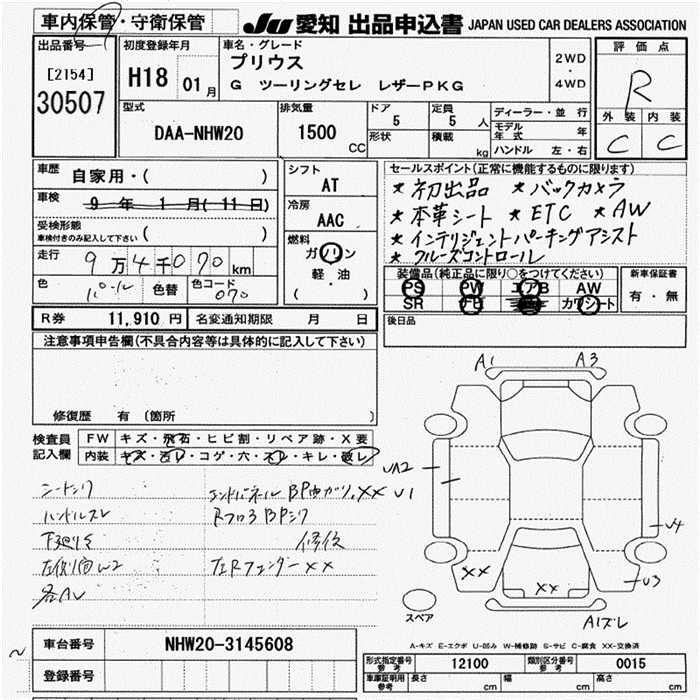 車内保管・守衛保管
JU 愛知 出品申込書 JAPAN USED CAR DEALERS ASSOCIATION
出品番号
[2154]
30507
初度登録年月
H18 01月
車名・グレード
プリウス
G ツーリングセレ レザーPKG
2WD
・
4WD
評価点
R
外装 内装
C C
型式
DAA-NHW20
排気量
1500 CC
ドア
5
形状
定員
5 人
積載 kg
ディーラー・並行
モデル年式 年
ハンドル 左・右
車歴
自家用・( )
車検
9 年 1 月(11日)
受検形態
車検付きのみ記入して下さい ( )
走行
9万4千070 km
色
パール
色替
色コード
070
シフト
AT
冷房
AAC
燃料
ガソリン
軽・油
( )
セールスポイント(正常に機能するものに限ります)
★初出品 ★バックカメラ
★本革シート ★ETC ★AW
★インテリジェントパーキングアシスト
★クルーズコントロール
装備品(純正品に限り○をつけてください)
PS PW エアB AW
SR ナビ カワシート
新車保証書
有・無
後日品
R券 11,910 円 名変通知期限 月 日
注意事項申告欄(不具合内容等は具体的に記入して下さい)
修復歴 有 (箇所 )
検査員
記入欄
FW キズ・飛石・ヒビ割・リペア跡・X要
内装 キズ・汚レ・コゲ・穴・スレ・キレ・破レ
シートシワ
ハンドルスレ
下廻りS
左側面W2
各AU
エンドパネルBP曲ガリ、XX U1
Rフロア BPシワ
修復
左Rフェンダー XX
A1 A3
UA2
U4
XX
XX
U3
A1ズレ
スペア
A-キズ E-エクボ U-凹み W-補修跡 S-サビ C-腐食 XX-交換済
車台番号 NHW20-3145608
登録番号
型式指定番号 参考 12100 類別区分番号 参考 0015
車庫証明用 参考 長さ cm 幅 cm 高さ cm